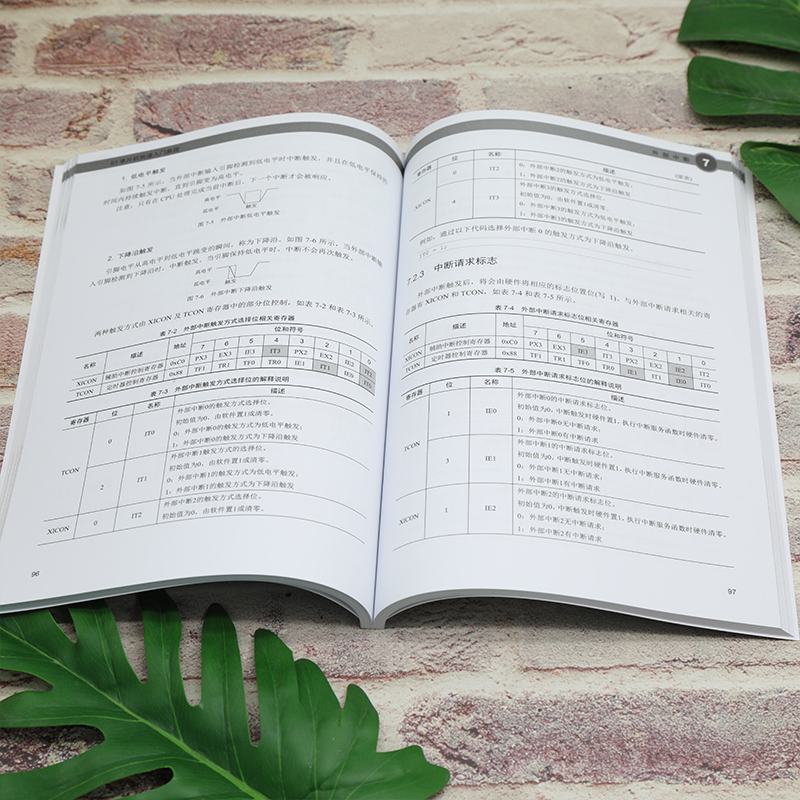 51单片机快速入门教程
1. 低电平触发
如图 7-5 所示，当外部中断输入引脚检测到低电平时中断触发，并且在低电平保持的
时间内持续触发中断，直到引脚变为高电平。
注意，只有在 CPU 处理完成当前中断后，下一个中断才会被响应。
高电平
低电平
触发
图 7-5 外部中断低电平触发
2. 下降沿触发
引脚电平从高电平到低电平跳变的瞬间，称为下降沿。如图 7-6 所示，当外部中断输
入引脚检测到下降沿时，中断触发，当引脚保持低电平时，中断不会再次触发。
高电平
低电平
触发
图 7-6 外部中断下降沿触发
两种触发方式由 XICON 及 TCON 寄存器中的部分位控制，如表 7-2 和表 7-3 所示。
表 7-2 外部中断触发方式选择位相关寄存器
名称 描述 地址 位和符号
7 6 5 4 3 2 1 0
XICON 辅助中断控制寄存器 0xC0 PX3 EX3 IE3 IT3 PX2 EX2 IE2 IT2
TCON 定时器控制寄存器 0x88 TF1 TR1 TF0 TR0 IE1 IT1 IE0 IT0
表 7-3 外部中断触发方式选择位的解释说明
寄存器 位 名称 描述
TCON 0 IT0 外部中断0的触发方式选择位。
初始值为0，由软件置1或清零。
0：外部中断0的触发方式为低电平触发；
1：外部中断0的触发方式为下降沿触发
2 IT1 外部中断1触发方式的选择位。
初始值为0，由软件置1或清零。
0：外部中断1的触发方式为低电平触发；
1：外部中断1的触发方式为下降沿触发
XICON 0 IT2 外部中断2的触发方式选择位。
初始值为0，由软件置1或清零。
96
外部中断 7
(续表)
寄存器 位 名称 描述
XICON 0 IT2 0：外部中断2的触发方式为低电平触发；
1：外部中断2的触发方式为下降沿触发
4 IT3 外部中断3的触发方式选择位。
初始值为0，由软件置1或清零。
0：外部中断3的触发方式为低电平触发；
1：外部中断3的触发方式为下降沿触发
例如，通过以下代码选择外部中断 0 的触发方式为下降沿触发。
IT0 = 1;
7.2.3 中断请求标志
外部中断触发后，将会由硬件将相应的标志位置位(写 1)，与外部中断请求相关的寄
存器有 XICON 和 TCON，如表 7-4 和表 7-5 所示。
表 7-4 外部中断请求标志位相关寄存器
名称 描述 地址 位和符号
7 6 5 4 3 2 1 0
XICON 辅助中断控制寄存器 0xC0 PX3 EX3 IE3 IT3 PX2 EX2 IE2 IT2
TCON 定时器控制寄存器 0x88 TF1 TR1 TF0 TR0 IE1 IT1 IE0 IT0
表 7-5 外部中断请求标志位的解释说明
寄存器 位 名称 描述
TCON 1 IE0 外部中断0的中断请求标志位。
初始值为0，中断触发时硬件置1，执行中断服务函数时硬件清零。
0：外部中断0无中断请求；
1：外部中断0有中断请求
3 IE1 外部中断1的中断请求标志位。
初始值为0，中断触发时硬件置1，执行中断服务函数时硬件清零。
0：外部中断1无中断请求；
1：外部中断1有中断请求
XICON 1 IE2 外部中断2的中断请求标志位。
初始值为0，中断触发时硬件置1，执行中断服务函数时硬件清零。
0：外部中断2无中断请求；
1：外部中断2有中断请求
97